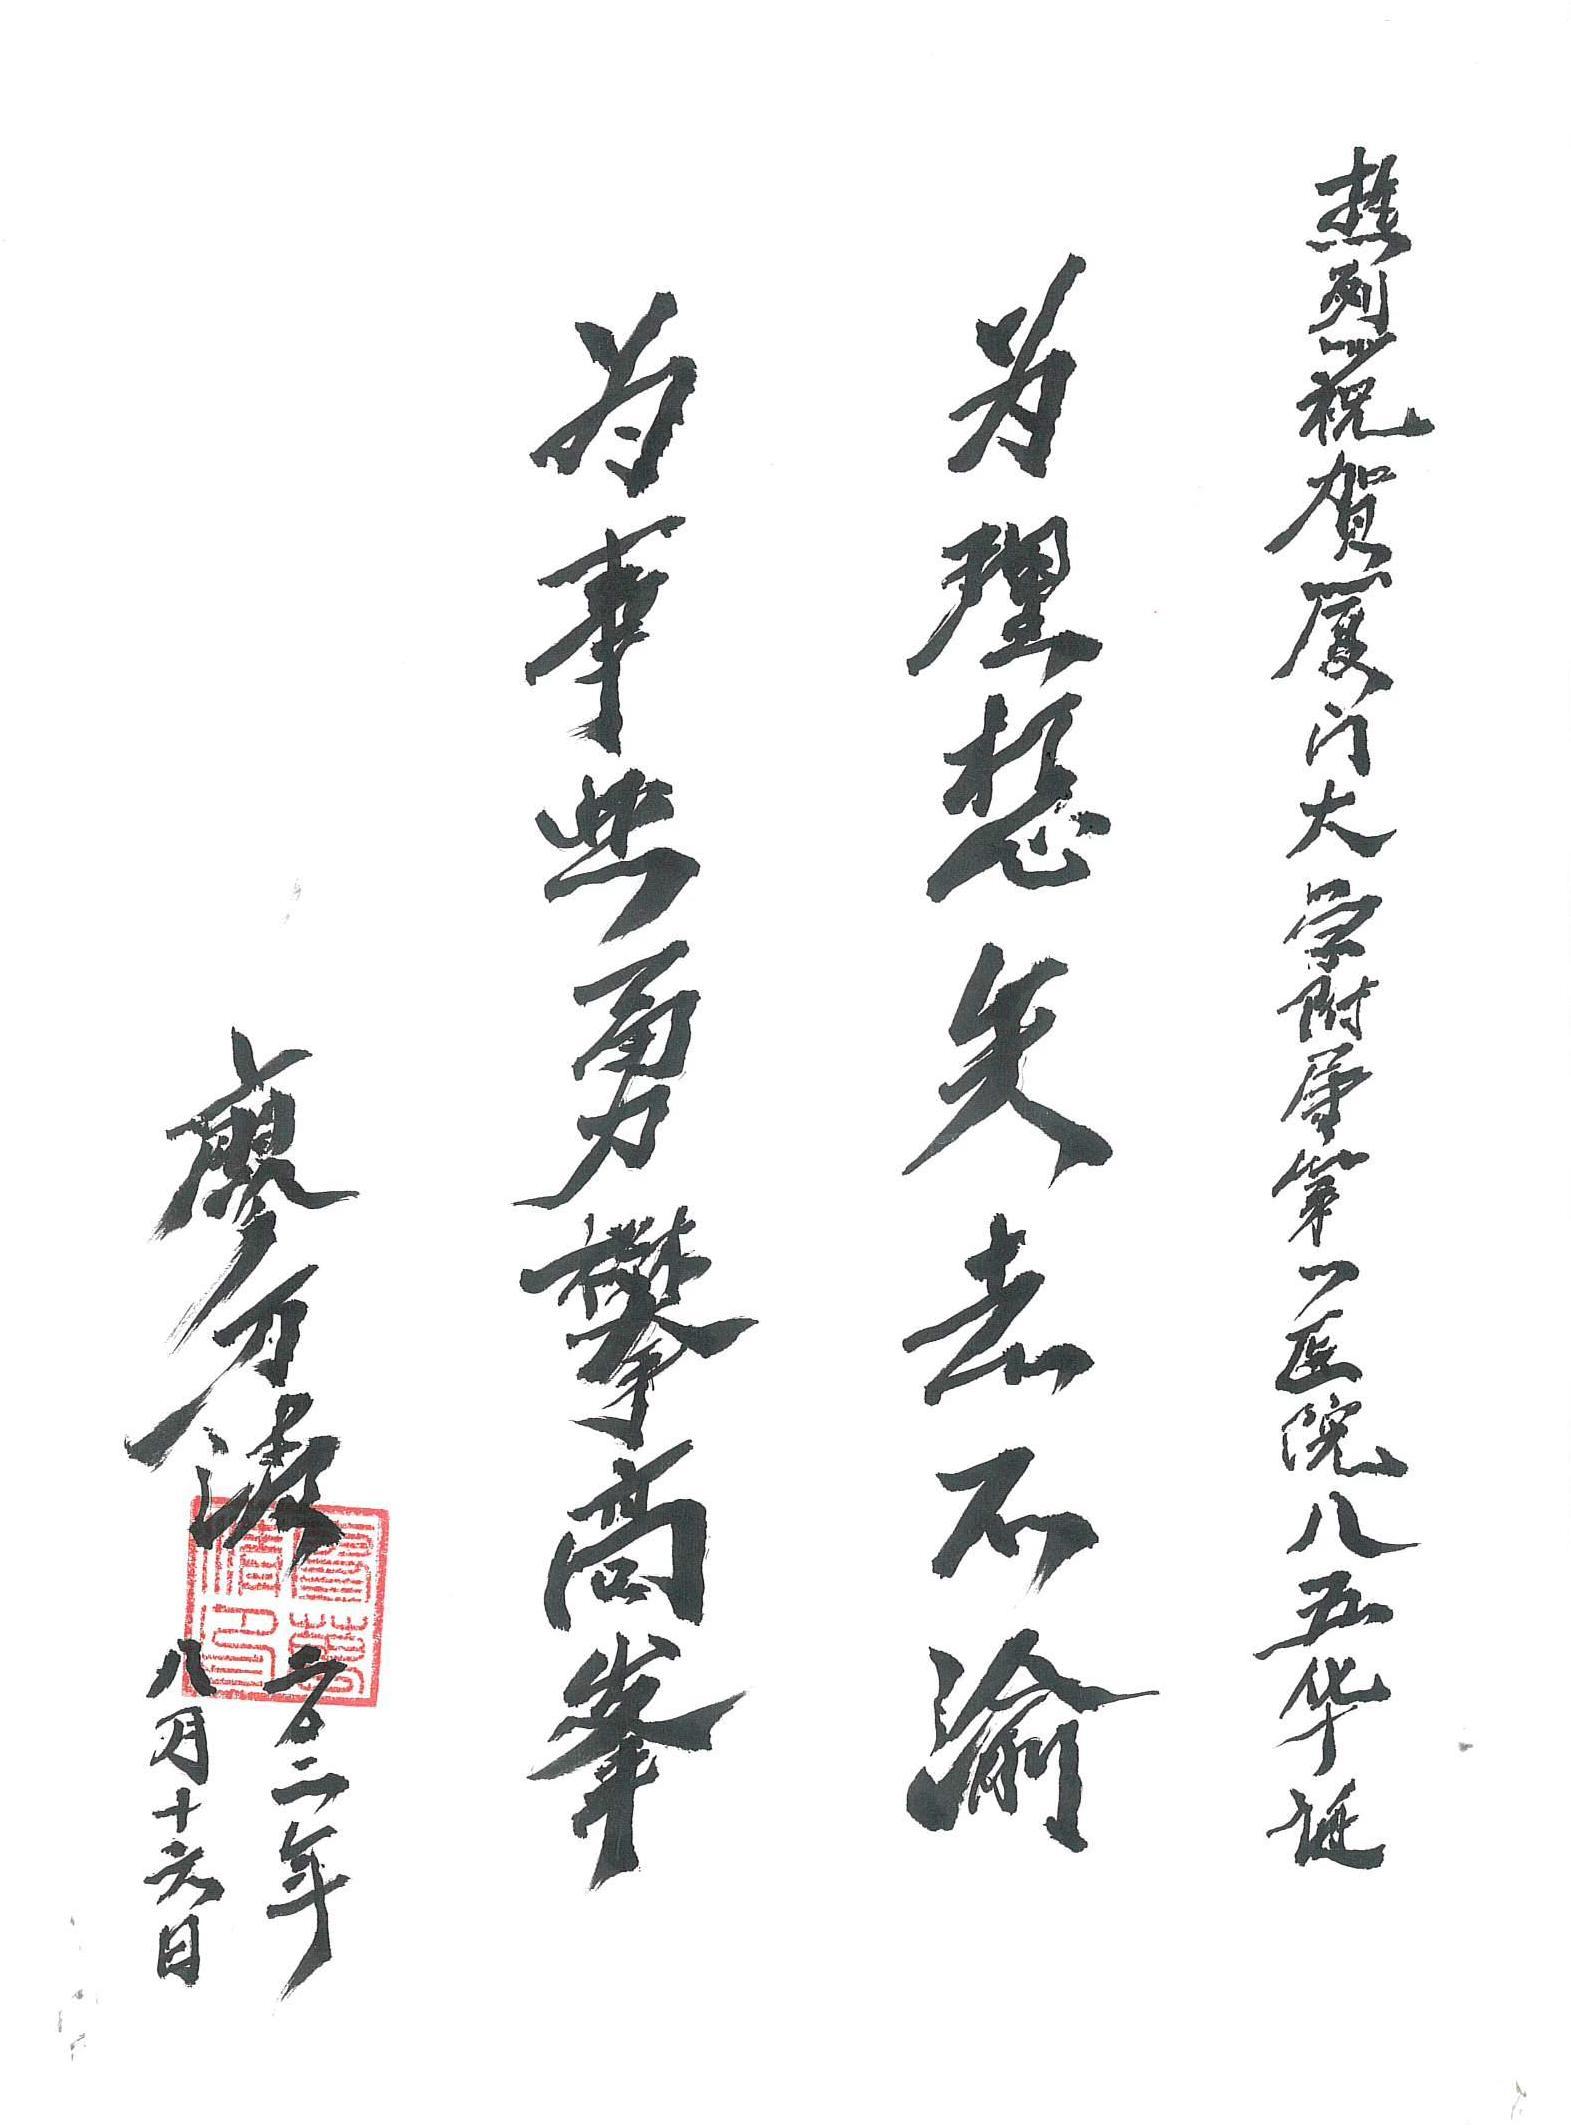 热烈祝贺厦门大学附属第一医院八五华诞
为理想矢志不渝
为事业勇攀高峯
廖万清
二〇二二年
八月十六日
廖萬
清印